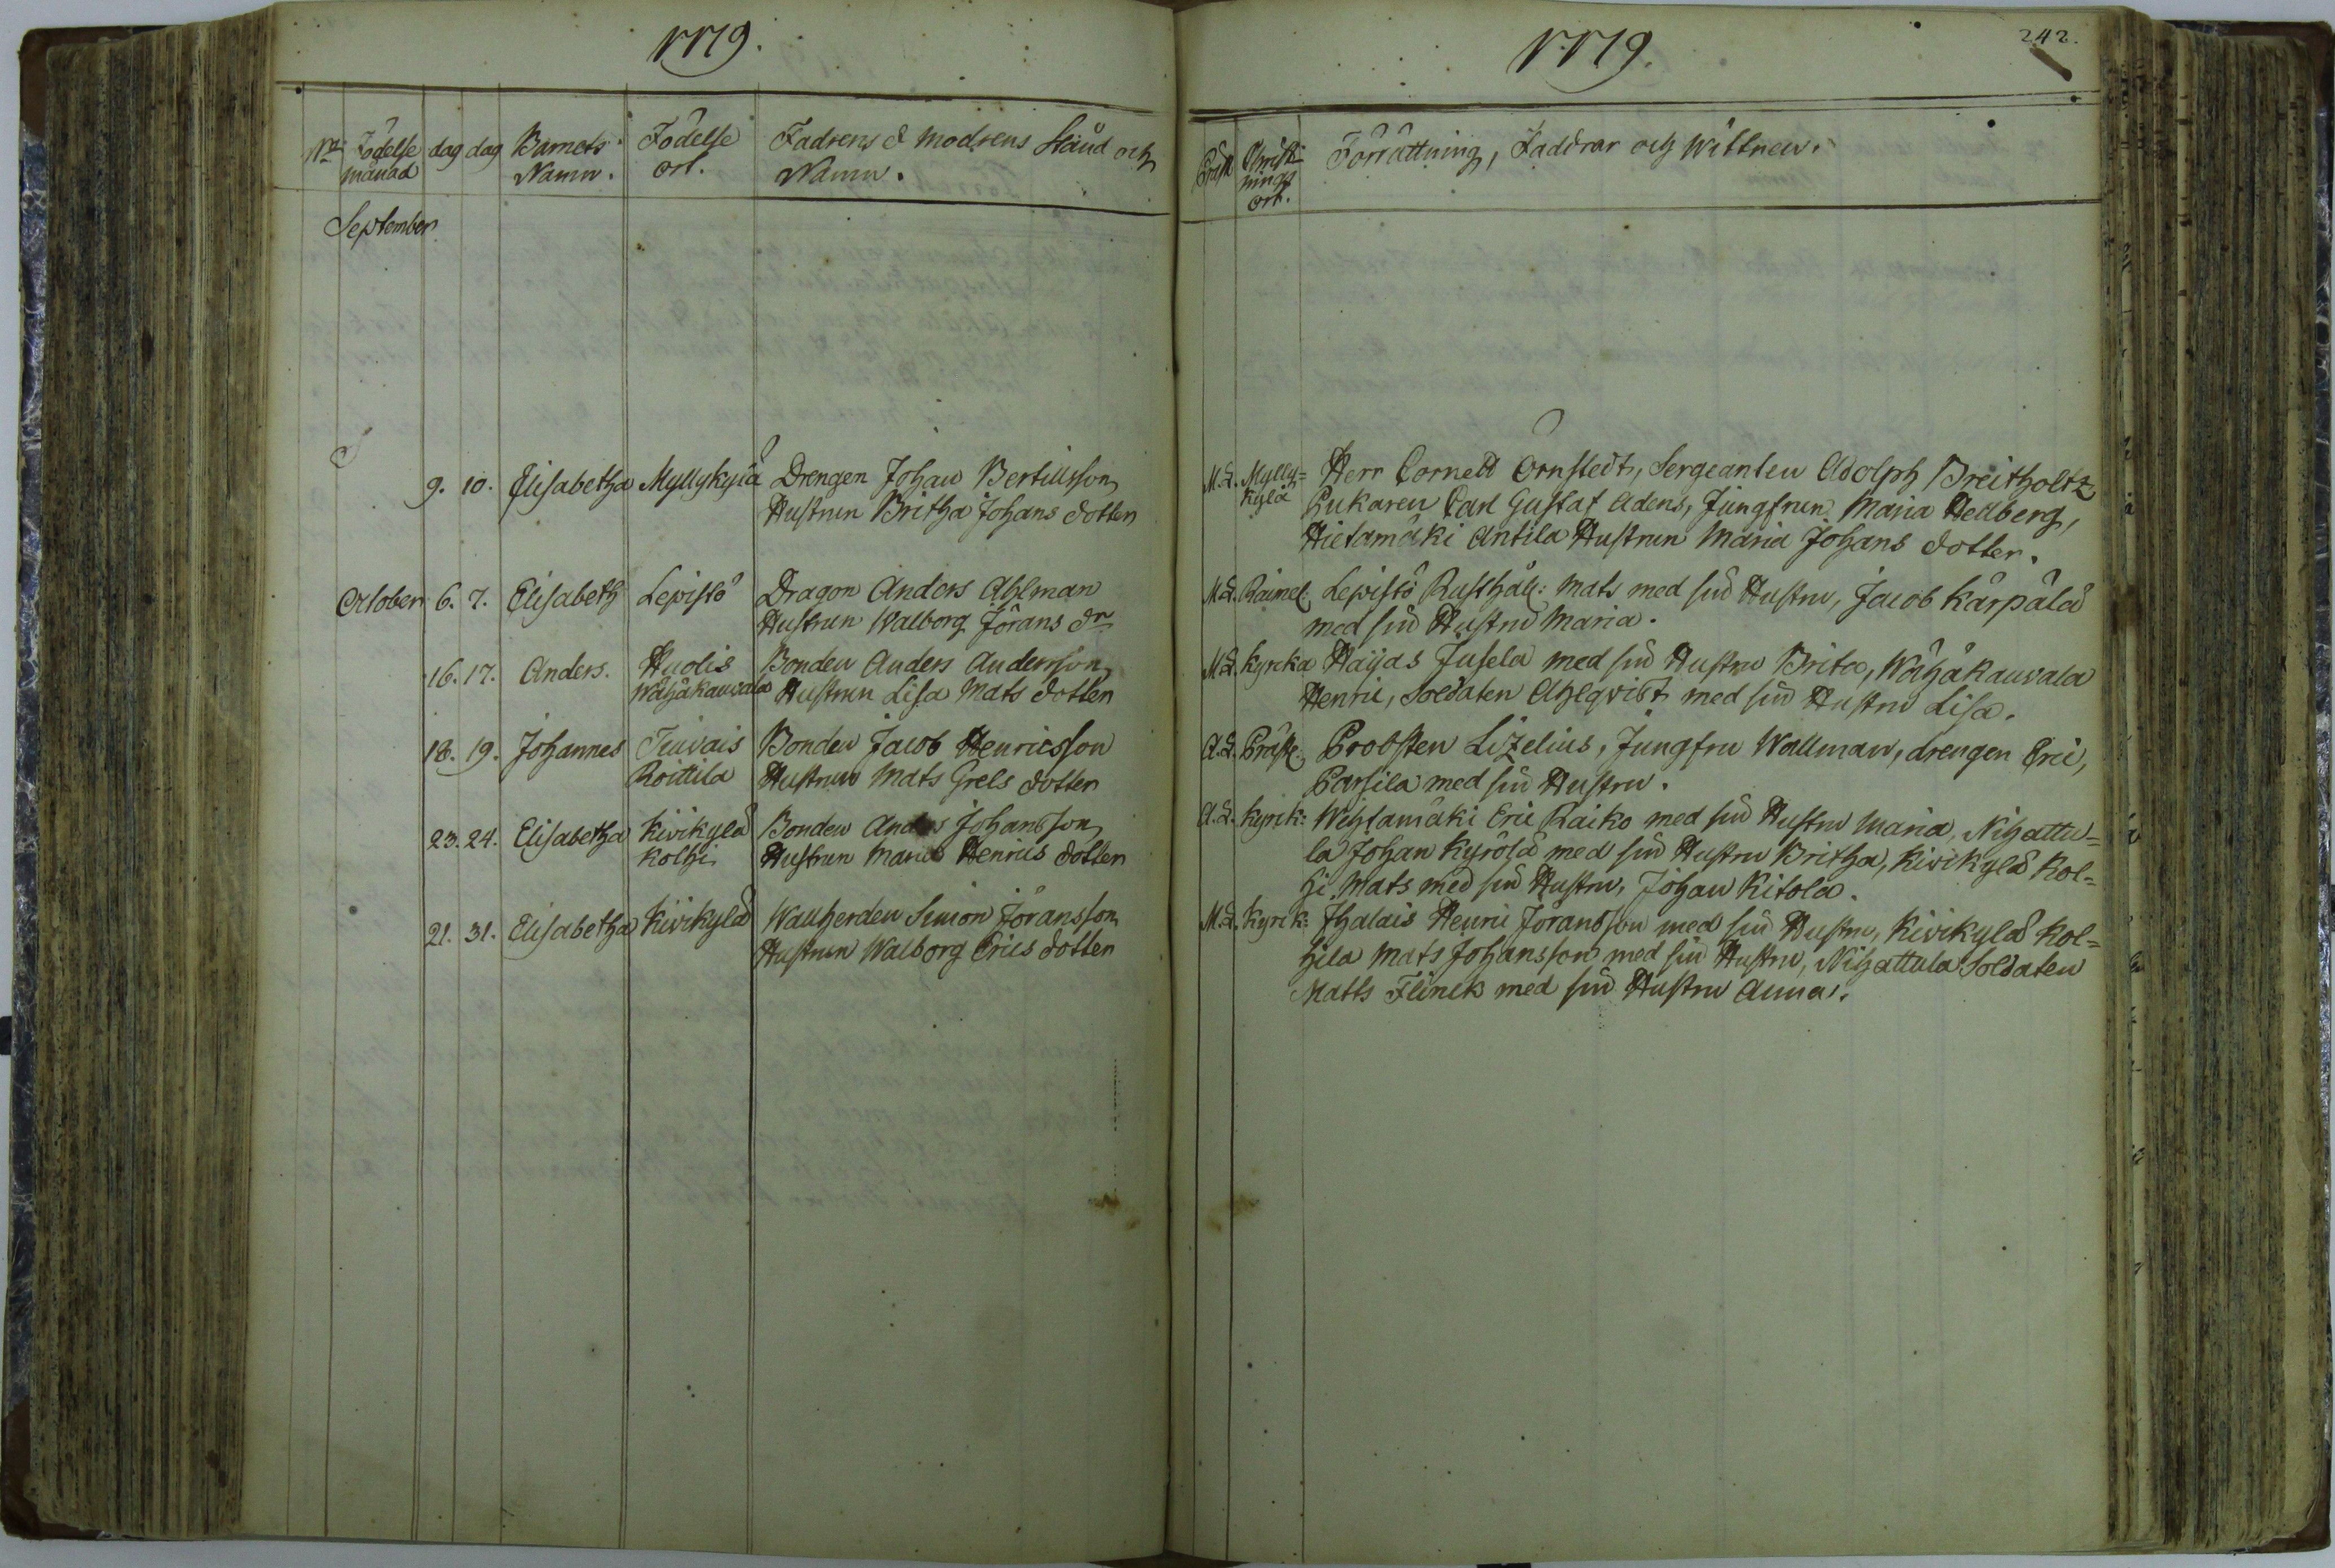 1779.
No Födelse månad dag dag Barnets Namn. Födelse ort. Fadrens & Modrens Stånd och Namn.
September
9. 10. Elisabetha Myllykylä Drengen Johan Bertillsson
Hustrun Britha Johans dotter
October 6. 7. Elisabeth Lepistö Dragon Anders Ahlman
Hustrun Walborg Jörans dr
16. 17. Anders. Huolis Bonden Anders Andersson
Wähäkauvala Hustrun Lisa Mats dotter
18. 19. Johannes Tuvais Bonden Jacob Henricsson
Roittila Hustrun Mats Grels dotter
23. 24. Elisabetha Kivikylä Bonden Anders Johansson
Kolhi Hustrun Maria Henrics dotter
21. 31. Elisabetha Kivikylä Wallherden Simon Jöransson
Hustrun Walborg Erics dotter
1779.
242.
Präst Christnings ort. Förrättning, Faddrar och Wittnen.
M.L. Mylly= Herr Cornett Örnstedt, Sergeanten Adolph Breitholtz
kylä Lukaren Carl Gustaf Adens, Jungfrun Maria Hedberg,
Hietamäki Antila Hustrun Maria Johans dotter.
M.L. Raimel. Lepistö Rusthåll: Mats med sin Hustru, Jacob Kärpälä
med sin Hustru Maria.
M.L. Kyrcka Haijas Jusela med sin Hustru Brita, Wähäkauvala
Henric, Soldaten Ahlqvist med sin Hustru Lisa.
A.L. Präste. Probsten Lizelius, Jungfru Wallman, drengen Eric,
Parsila med sin Hustru.
A.L. Kyrck: Wehtamäki Eric Raiko med sin Hustru Maria, Nihattu=
la Johan Kyrölä med sin Hustru Britha, Kivikylä Kol=
hi Mats med sin Hustru, Johan Kitola.
M.L. Kyrck: Ihalais Henric Jöransson med sin Hustru, Kivikylä Kol=
hila Mats Johansson med sin Hustru, Nihattula Soldaten
Matts Flinck med sin Hustru Anna.